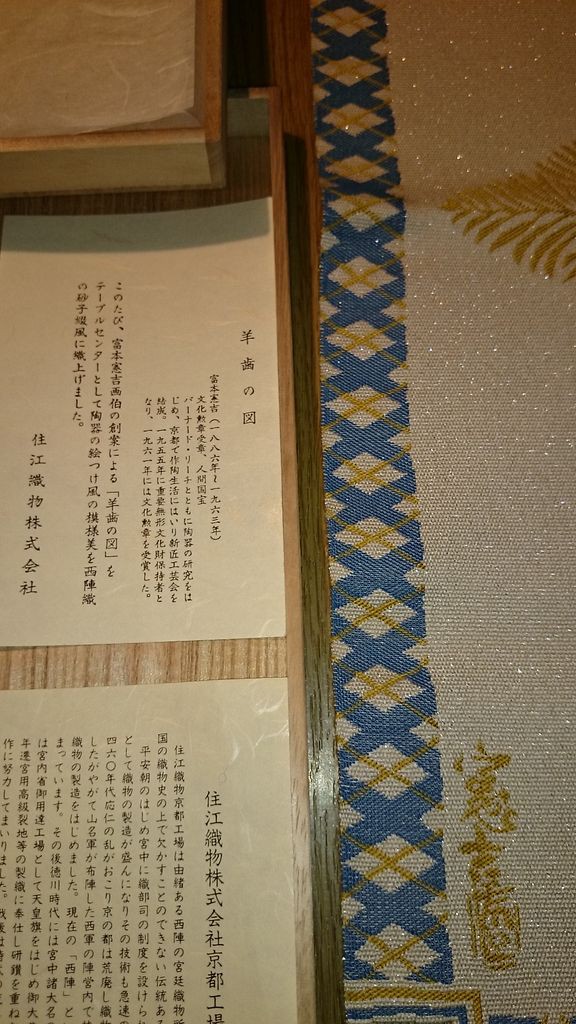 羊歯の図
富本憲吉(一八八六年~一九六三年)
文化勲章受章、人間国宝
バーナード・リーチとともに陶器の研究をは
じめ、京都で作陶生活にはいり新匠工芸会を
結成。一九五五年に重要無形文化財保持者と
なり、一九六一年には文化勲章を受賞した。
このたび、富本憲吉画伯の創案による「羊歯の図」を
テーブルセンターとして陶器の絵つけ風の模様美を西陣織
の砂子綴風に織上げました。
住江織物株式会社
住江織物株式会社京都工場
住江織物京都工場は由緒ある西陣の宮廷織物所
国の織物史の上で欠かすことのできない伝統ある
平安朝のはじめ宮中に織部司の制度を設けられ
として織物の製造が盛んになりその技術も急速の
四六〇年代応仁の乱がおこり京の都は荒廃し織物
したがやがて山名軍が布陣した西軍の陣営内で
織物の製造をはじめました。現在の「西陣」と
まっています。その後徳川時代には宮中諸大名の
は宮内省御用達工場として天皇旗をはじめ御大
年遷宮用高級裂地等の製織に奉仕し研鑽を重ね
作に努力してまいりました。